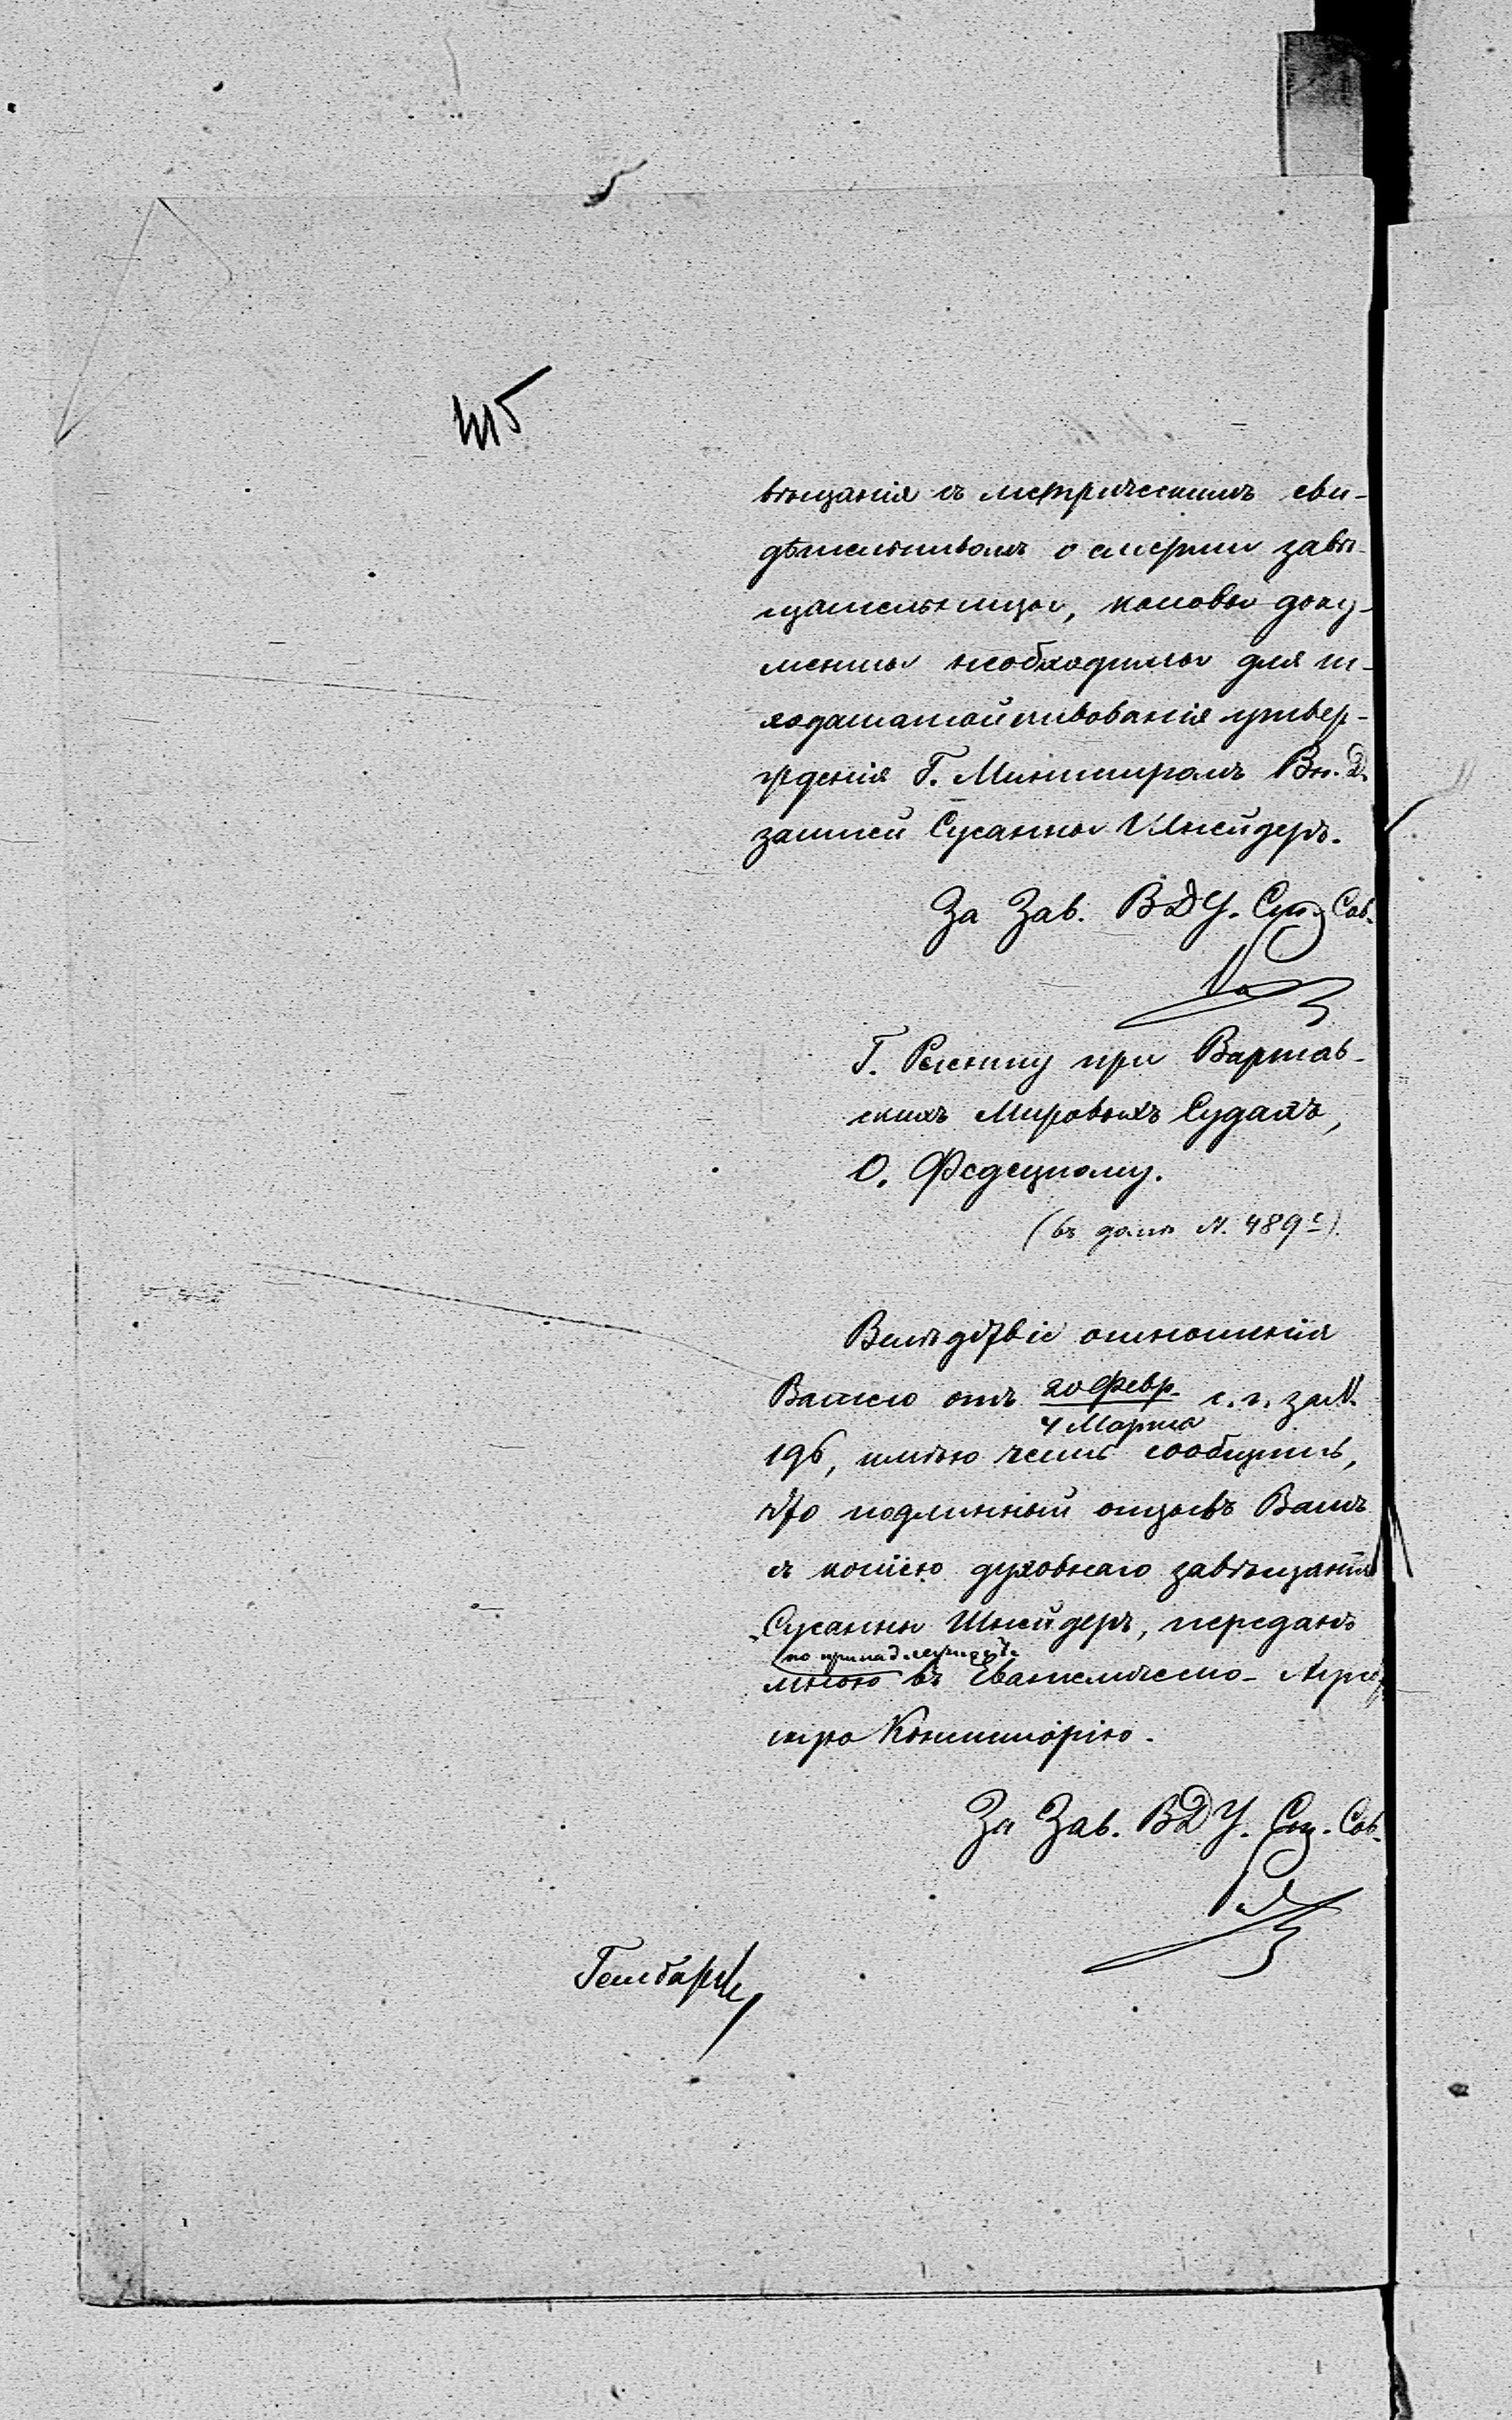 вѣщанія съ метрическимъ сви-
дѣтельствомъ о смерти завѣ-
щательницы, каковые доку-
менты необходимы для
ходатайствованія утвер-
жденія Г. Министромъ Вн. Д.
записи Сусанны Шнейдеръ.
За Зав. ВДУ. Сов.
Г. Реенту при Варшав-
скихъ Мировыхъ Судахъ,
О. Федецкому.
(въ домѣ N. 489 с).
Вслѣдствіе отношенія
Вашего отъ 20 Февр. с. г. за N.
4 Марта
196, имѣю честь сообщить,
что подлинный отзывъ Вашъ
съ копіею духовнаго завѣщанія
Сусанны Шнейдеръ, переданъ
по принадлежности
мною въ Евангелическо-
Консисторію.
За Зав. ВДУ. Сов.